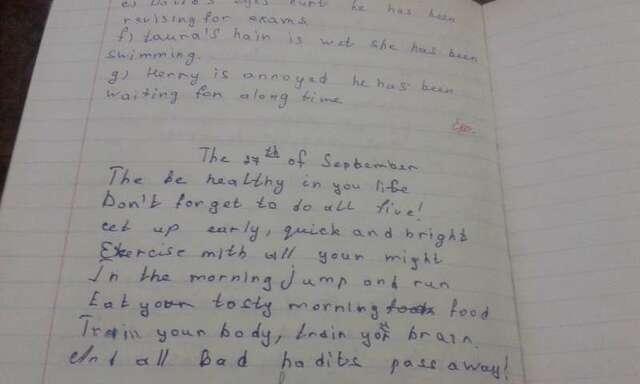 e) David's eyes hurt he has been
revising for exams.
f) Laura's hain is wet she has been
swimming.
g) Henry is annoyed he has been
waiting for along time
The 27th of September
The be healthy in you life
Don't forget to do all five!
Get up early, quick and bright
Exercise with all your might
In the morning jump and run
Eat your tasty morning food
Train your body, train your brain.
And all Bad hadits pass away!